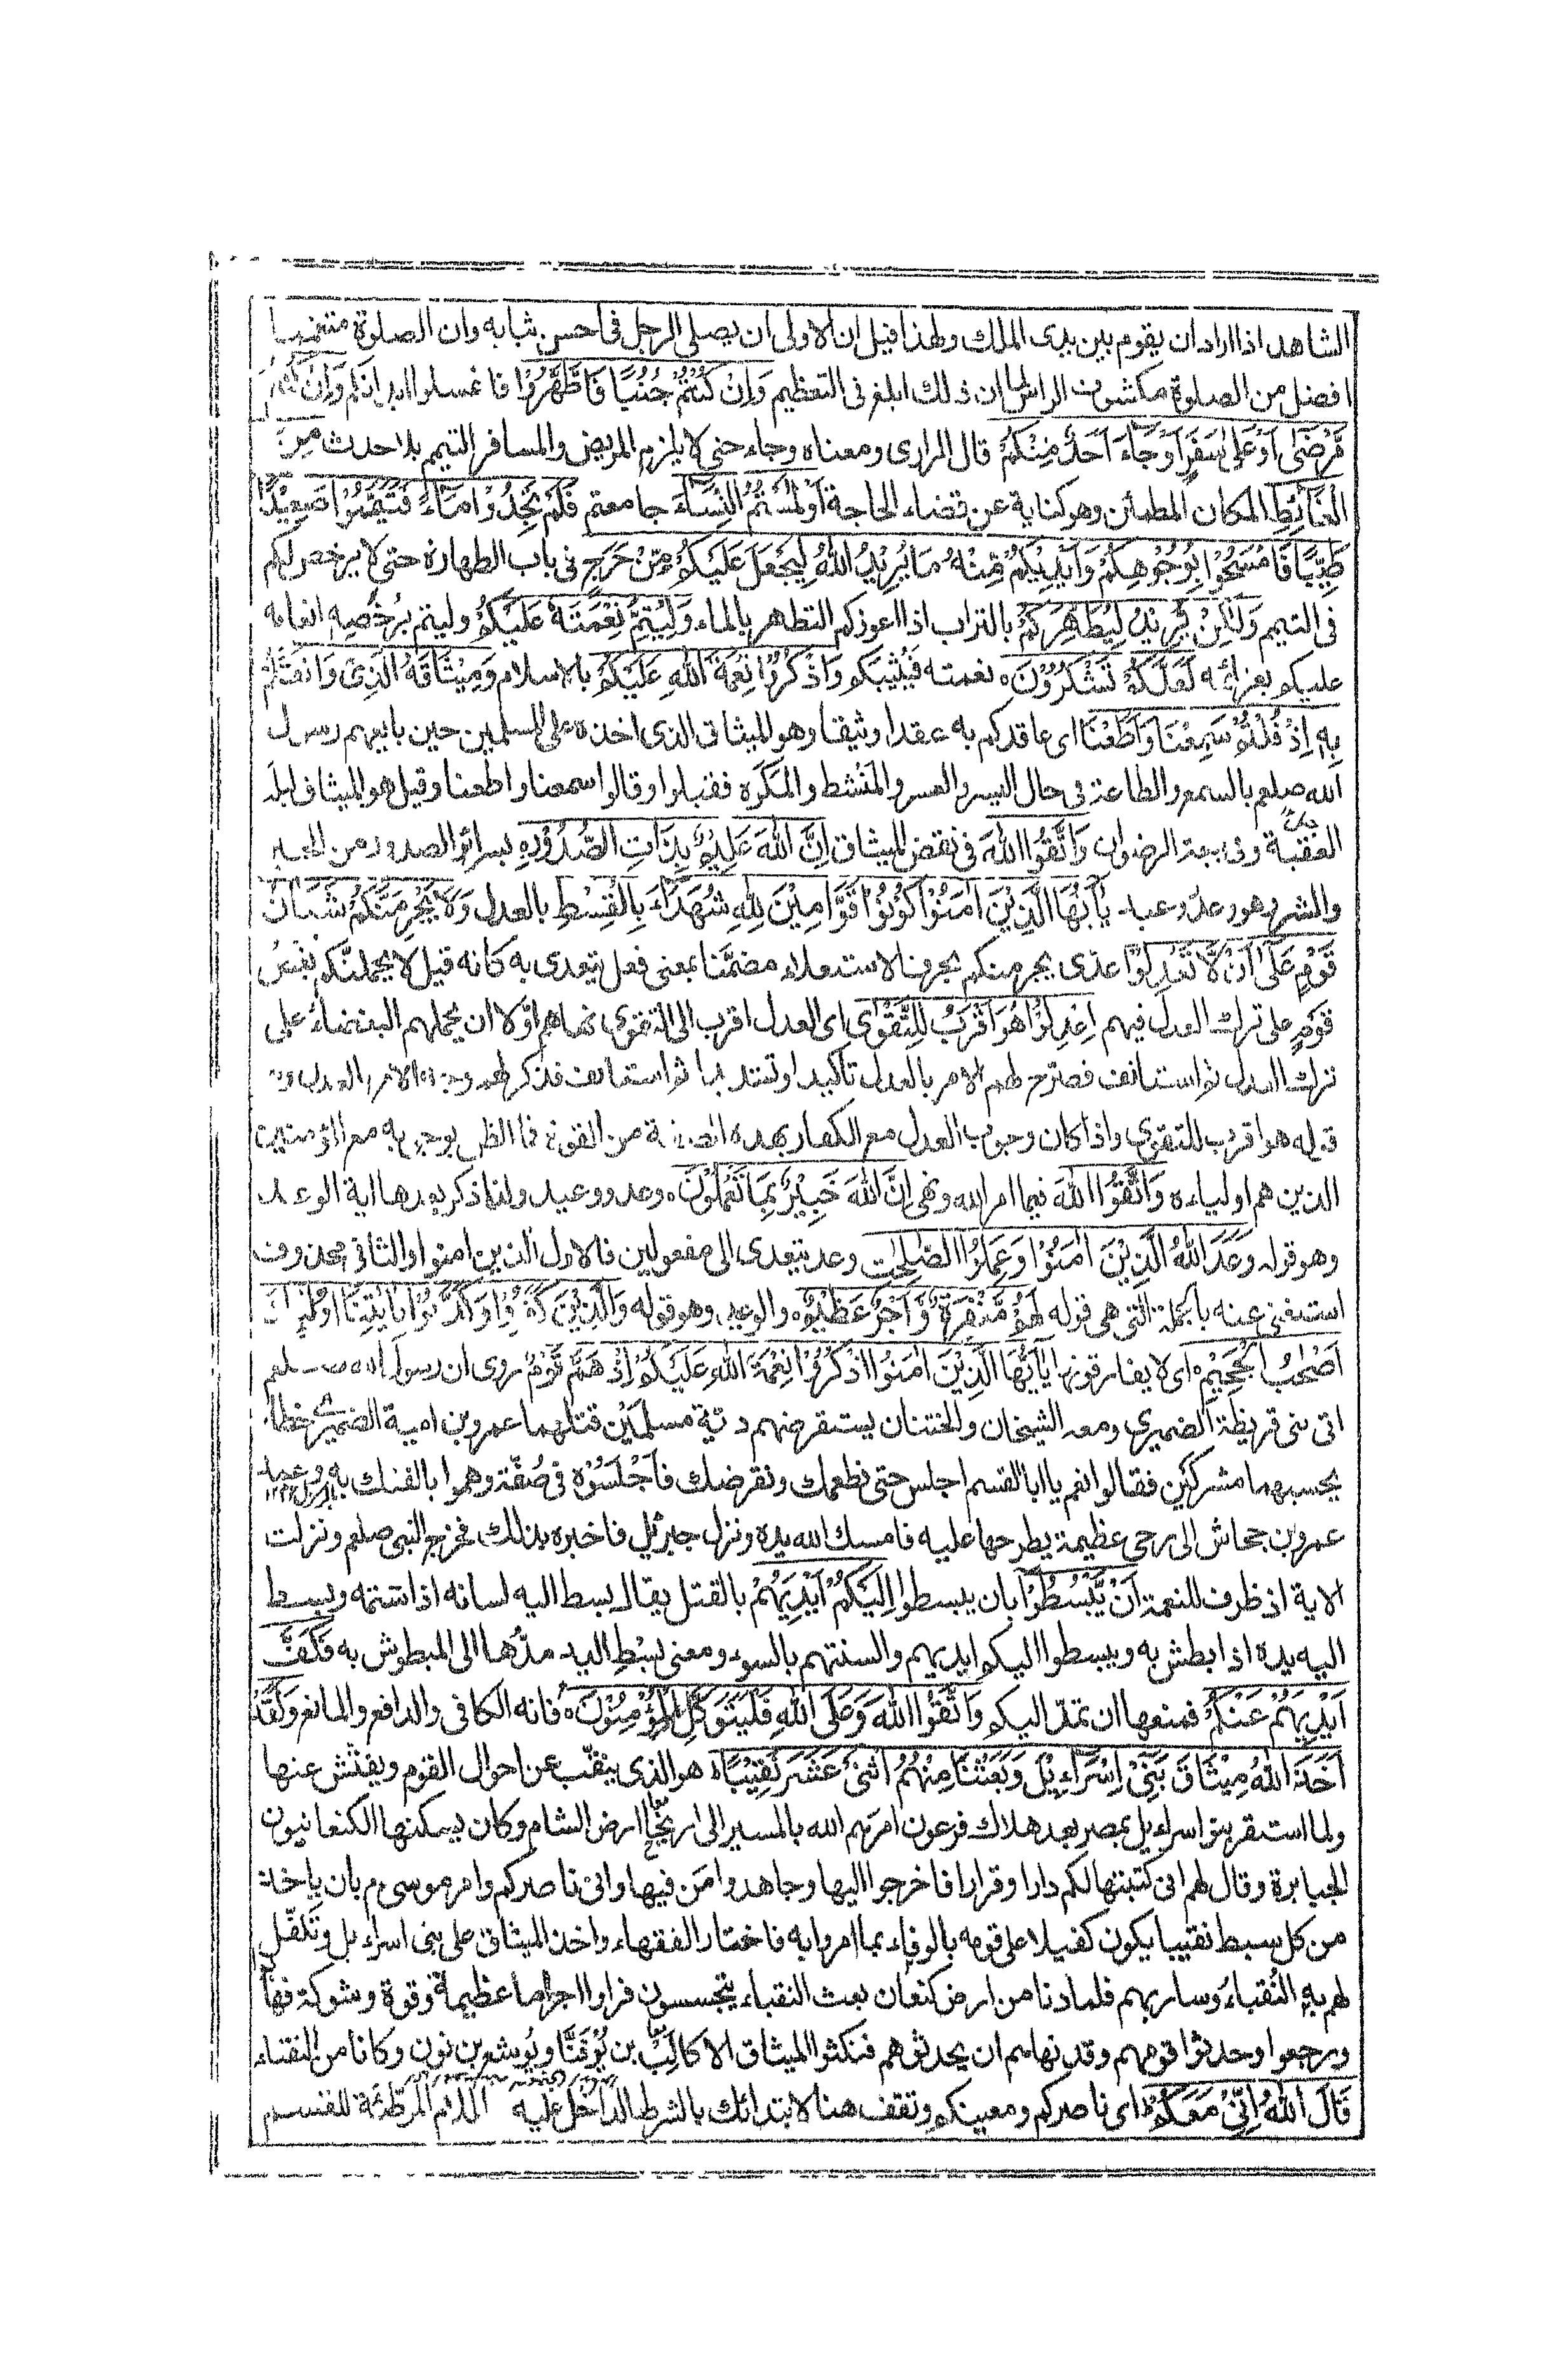 الشاهد اذا اراد ان يقوم بين يدى الملك ولهذا قيل ان الاولى ان يصلى الرجل فى احسن ثيابه وان الصلوة متعمما
افضل من الصلوة مكشوف الراس لما ان ذلك ابلغ فى التعظيم وَاِنْ كُنْتُمْ جُنُبًا فَاطَّهَّرُوْا فاغسلوا ابدانكم وَاِنْ كُنْتُمْ
مَّرْضٰى اَوْ عَلٰى سَفَرٍ اَوْ جَاءَ اَحَدٌ مِّنْكُمْ قال الرازى ومعناه وجاء حتى لا يلزم المريض والمسافر التيمم بلا حدث مِنَ
الْغَائِطِ المكان المطمئن وهو كناية عن قضاء الحاجة اَوْ لٰمَسْتُمُ النِّسَاءَ جامعتم فَلَمْ تَجِدُوْا مَاءً فَتَيَمَّمُوْا صَعِيْدًا
طَيِّبًا فَامْسَحُوْا بِوُجُوْهِكُمْ وَاَيْدِيْكُمْ مِّنْهُ مَا يُرِيْدُ اللهُ لِيَجْعَلَ عَلَيْكُمْ مِّنْ حَرَجٍ فى باب الطهارة حتى لا يرخص لكم
فى التيمم وَلٰكِنْ يُّرِيْدُ لِيُطَهِّرَكُمْ بالتراب اذا اعوزكم التطهر بالماء وَلِيُتِمَّ نِعْمَتَهٗ عَلَيْكُمْ وليتم برُخَصِه انعامه
عليكم بعزائمه لَعَلَّكُمْ تَشْكُرُوْنَ ه نعمته فيُثيبكم وَاذْكُرُوْا نِعْمَةَ اللهِ عَلَيْكُمْ بالاسلام وَمِيْثَاقَهُ الَّذِىْ وَاثَقَكُمْ
بِهٖ اِذْ قُلْتُمْ سَمِعْنَا وَاَطَعْنَا اى عاقدكم به عقدا وثيقا وهو الميثاق الذى اخذه على المسلمين حين بايعهم رسول
الله صلعم بالسمع والطاعة فى حال اليسر والعسر والمَنْشط والمَكْرَه فقبلوا وقالوا سمعنا واطعنا وقيل هو الميثاق ليلة
العقبة وفى بيعة الرضوان وَاتَّقُوا اللهَ فى نقض الميثاق اِنَّ اللهَ عَلِيْمٌ بِذَاتِ الصُّدُوْرِ ه بسرائر الصدور من الخير
والشر وهو وعد ووعيد يٰاَيُّهَا الَّذِيْنَ اٰمَنُوْا كُوْنُوْا قَوَّامِيْنَ لِلّٰهِ شُهَدَاءَ بِالْقِسْطِ بالعدل وَلَا يَجْرِمَنَّكُمْ شَنَاٰنُ
قَوْمٍ عَلٰى اَنْ لَّا تَعْدِلُوْا عدى يجرمنكم بحرف الاستعلاء مضمَّنا بمعنى فعل يتعدى به كانه قيل لا يحملنَّكم بغضُ
قومٍ على ترك العدل فيهم اِعْدِلُوْا هُوَ اَقْرَبُ لِلتَّقْوٰى اى العدل اقرب الى التقوى نهاهم اوّلا ان يحملهم البغضاء على
ترك العدل ثم استانف فصرّح لهم الامر بالعدل تاكيدا وتشديدا ثم استانف فذكر لهم وجه الامر بالعدل وهو
قوله هو اقرب للتقوى واذا كان وجوب العدل مع الكفار بهذه الصفة من القوة فما الظن بوجوبه مع المؤمنين
الذين هم اولياءه وَاتَّقُوا اللهَ فيما امر الله ونهى اِنَّ اللهَ خَبِيْرٌ بِمَا تَعْمَلُوْنَ ه وعد ووعيد ولذا ذكر بعدها اية الوعد
وهو قوله وَعَدَ اللهُ الَّذِيْنَ اٰمَنُوْا وَعَمِلُوا الصّٰلِحٰتِ وعد يتعدى الى مفعولين فالاول الذين امنوا والثانى محذوف
استغنى عنه بالجملة التى هى قوله لَهُمْ مَّغْفِرَةٌ وَّاَجْرٌ عَظِيْمٌ ه والوعيد وهو قوله وَالَّذِيْنَ كَفَرُوْا وَكَذَّبُوْا بِاٰيٰتِنَا اُولٰئِكَ
اَصْحٰبُ الْجَحِيْمِ ه اى لا يفارقونها يٰاَيُّهَا الَّذِيْنَ اٰمَنُوا اذْكُرُوْا نِعْمَةَ اللهِ عَلَيْكُمْ اِذْ هَمَّ قَوْمٌ روى ان رسول الله صلعم
اتى بنى قريظة الضميرى ومعه الشيخان والختنان يستقرضهم دية مسلمَيْن قتلهما عمرو بن امية الضميرى خطأ
يحسبهما مشركَين فقالوا نعم يا ابا القسم اجلس حتى نطعمك ونقرضك فاَجْلَسُوْه فى صُفّة وهموا بالفتك به وعمد
عمرو بن جحاش الى رحى عظيمة يطرحها عليه فامسك الله يده ونزل جبرئيل فاخبره بذلك فخرج النبى صلعم ونزلت
الاية اذ ظرف للنعمة اَنْ يَّبْسُطُوْا بان يبسطوا اِلَيْكُمْ اَيْدِيَهُمْ بالقتل يقال بسط اليه لسانه اذا شتمه وبسط
اليه يده اذا بطش به ويبسطوا اليكم ايديهم والسنتهم بالسوء ومعنى بسْطِ اليد مدّها الى المبطوش به فَكَفَّ
اَيْدِيَهُمْ عَنْكُمْ فمنعها ان تمتدّ اليكم وَاتَّقُوا اللهَ وَعَلَى اللهِ فَلْيَتَوَكَّلِ الْمُؤْمِنُوْنَ ه فانه الكافى والدافع والمانع وَلَقَدْ
اَخَذَ اللهُ مِيْثَاقَ بَنِىْ اِسْرَاءِيْلَ وَبَعَثْنَا مِنْهُمُ اثْنَىْ عَشَرَ نَقِيْبًا ه هو الذى ينقّب عن احوال القوم ويفتّش عنها
ولما استقر بنو اسراءيل بمصر بعد هلاك فرعون امرهم الله بالمسير الى اريحا ارض الشام وكان يسكنها الكنعانيون
الجبابرة وقال لهم انى كتبتها لكم دارا وقرارا فاخرجوا اليها وجاهدوا مَن فيها وانى ناصركم وامر موسى م بان ياخذ
من كل سبط نقيبا يكون كفيلا على قومه بالوفاء بما امروا به فاختار النقباء واخذ الميثاق على بنى اسراءيل وتكفّل
لهم به النُقباء وسار بهم فلما دنا من ارض كنعان بعث النقباء يتجسسون فراوا اجراما عظيمة وقوة وشوكة فهابوا
ورجعوا وحدثوا قومهم وقد نهاهم ان يحدثوهم فنكثوا الميثاق الا كالب بن يُوْقَنَّا ويُوشع بن نون وكانا من النقباء
قَالَ اللهُ اِنِّىْ مَعَكُمْ اى ناصركم ومعينكم وتقف هنا لابتدائك بالشرط الداخل عليه اللام الموطّئة للقسم